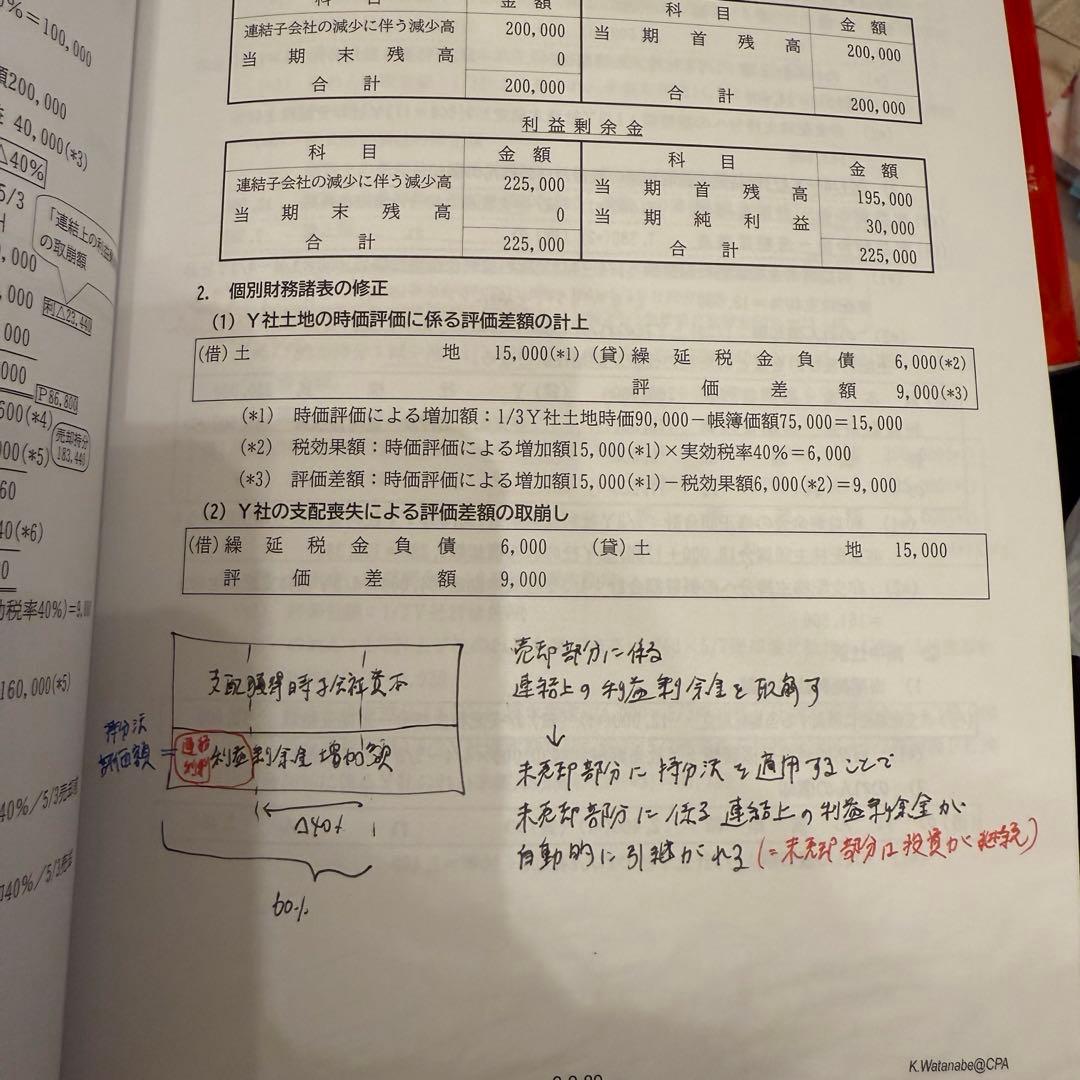 %＝100,000
額200,000
40,000(*3)
△40%
5/3
「連結上の利益
の取崩額
利△23,440
P86,800
600(*4)
売却持分
183,440
000(*5)
60
40(*6)
税率40%)＝9,
160,000(*5)
40%／5/3売却
40%／5/3売却
科 目 金 額 科 目 金 額
連結子会社の減少に伴う減少高 200,000 当期首残高 200,000
当期末残高 0
合 計 200,000 合 計 200,000
利益剰余金
科 目 金 額 科 目 金 額
連結子会社の減少に伴う減少高 225,000 当期首残高 195,000
当期末残高 0 当期純利益 30,000
合 計 225,000 合 計 225,000
2. 個別財務諸表の修正
(1) Y社土地の時価評価に係る評価差額の計上
(借) 土 地 15,000(*1) (貸) 繰延税金負債 6,000(*2)
評価差額 9,000(*3)
(*1) 時価評価による増加額：1/3Y社土地時価90,000－帳簿価額75,000＝15,000
(*2) 税効果額：時価評価による増加額15,000(*1)×実効税率40%＝6,000
(*3) 評価差額：時価評価による増加額15,000(*1)－税効果額6,000(*2)＝9,000
(2) Y社の支配喪失による評価差額の取崩し
(借) 繰延税金負債 6,000 (貸) 土 地 15,000
評価差額 9,000
支配獲得時子会社資本
持分法
評価額＝
連結
利剰
利益剰余金増加額
△40%
60%
売却部分に係る
連結上の利益剰余金を取崩す
↓
未売却部分に持分法を適用することで
未売却部分に係る連結上の利益剰余金が
自動的に引継がれる(＝未売却部分は投資が継続)
K.Watanabe@CPA